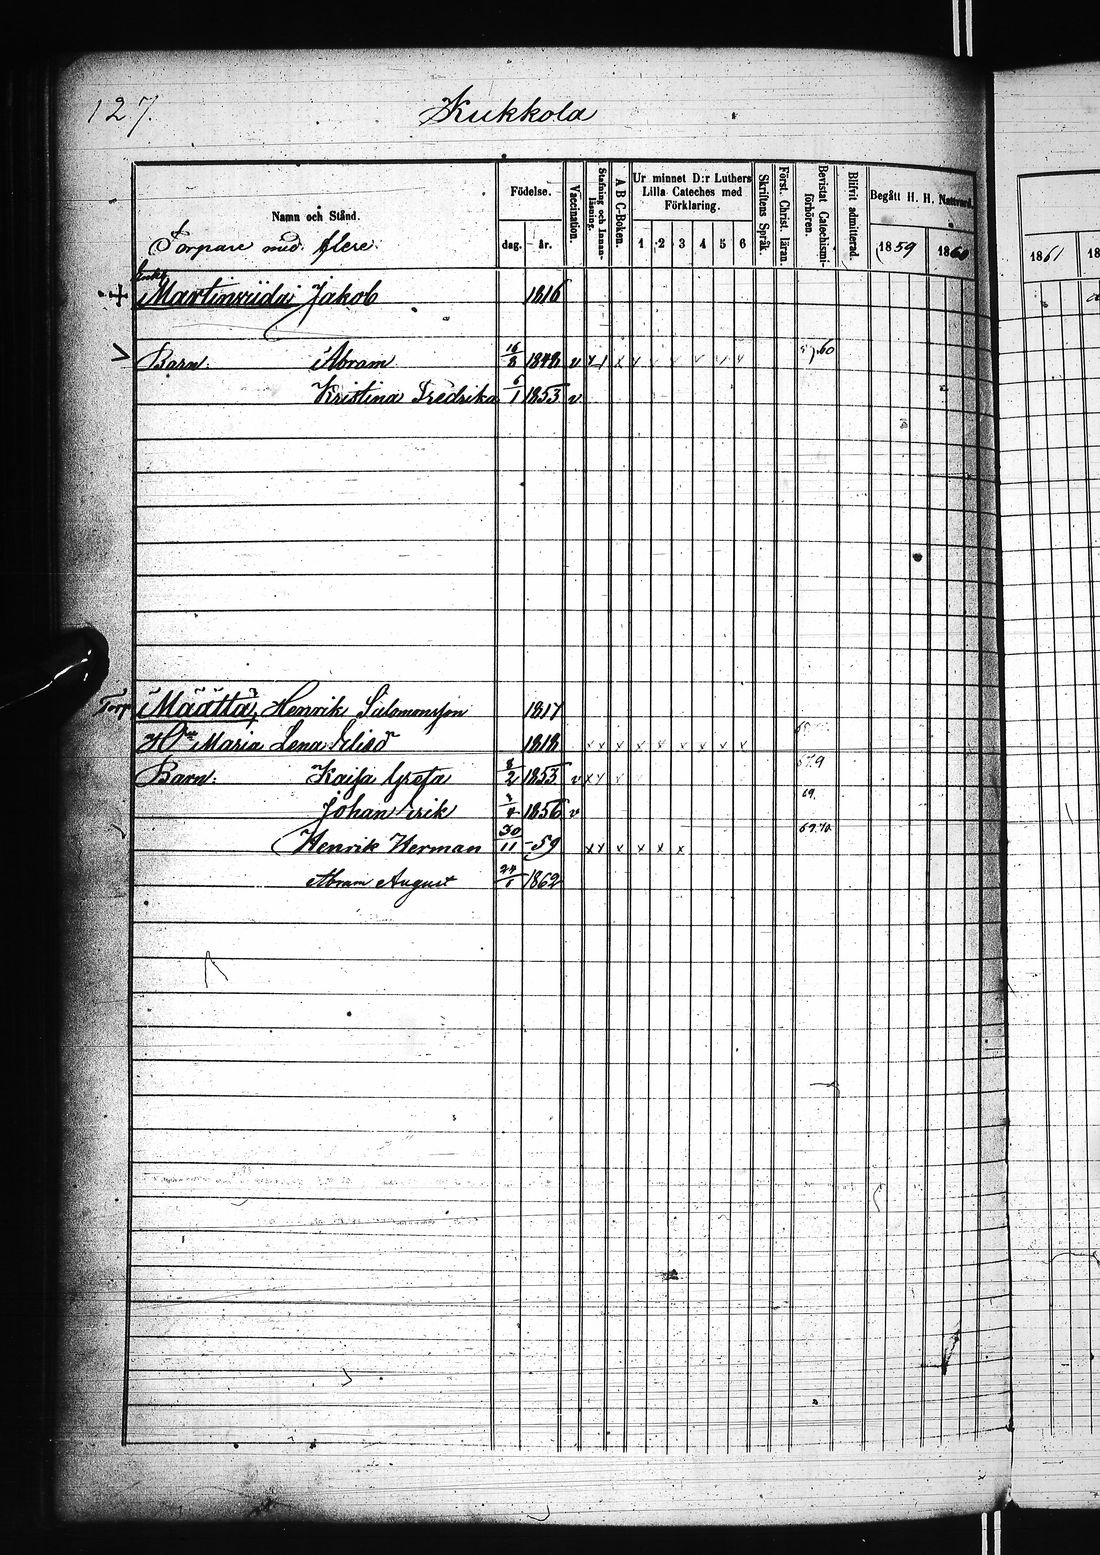 127.
Kukkola
Namn och Stånd.
Torpare med flere.
Födelse.
dag. år.
Vaccination.
Stafning och Innanläsning.
A B C-Boken.
Ur minnet D:r Luthers Lilla Cateches med Förklaring.
1 2 3 4 5 6
Skriftens Språk.
Först. Christ. läran
Bevistat Catechismiförhören.
Blifvit admitterad.
Begått H. H. Nattvard.
1859 1860
1861 18
Enkl.
Martinviida Jakob 1816
Barn: Abram 16/8 1848 v x x x v v v v v v 60
Kristina Fredrika 6/1 1853 v
Torp. Määttä, Henrik Salomonsson 1817
Hu Maria Lena 1818 x x x x x x x x x
Barn: Kaisa Greta 8/2 1853 v x x
Johan Erik 1856 v 69.
Henrik Herman 30/11 -59 x x x x x x 69.70
Abram August 1862